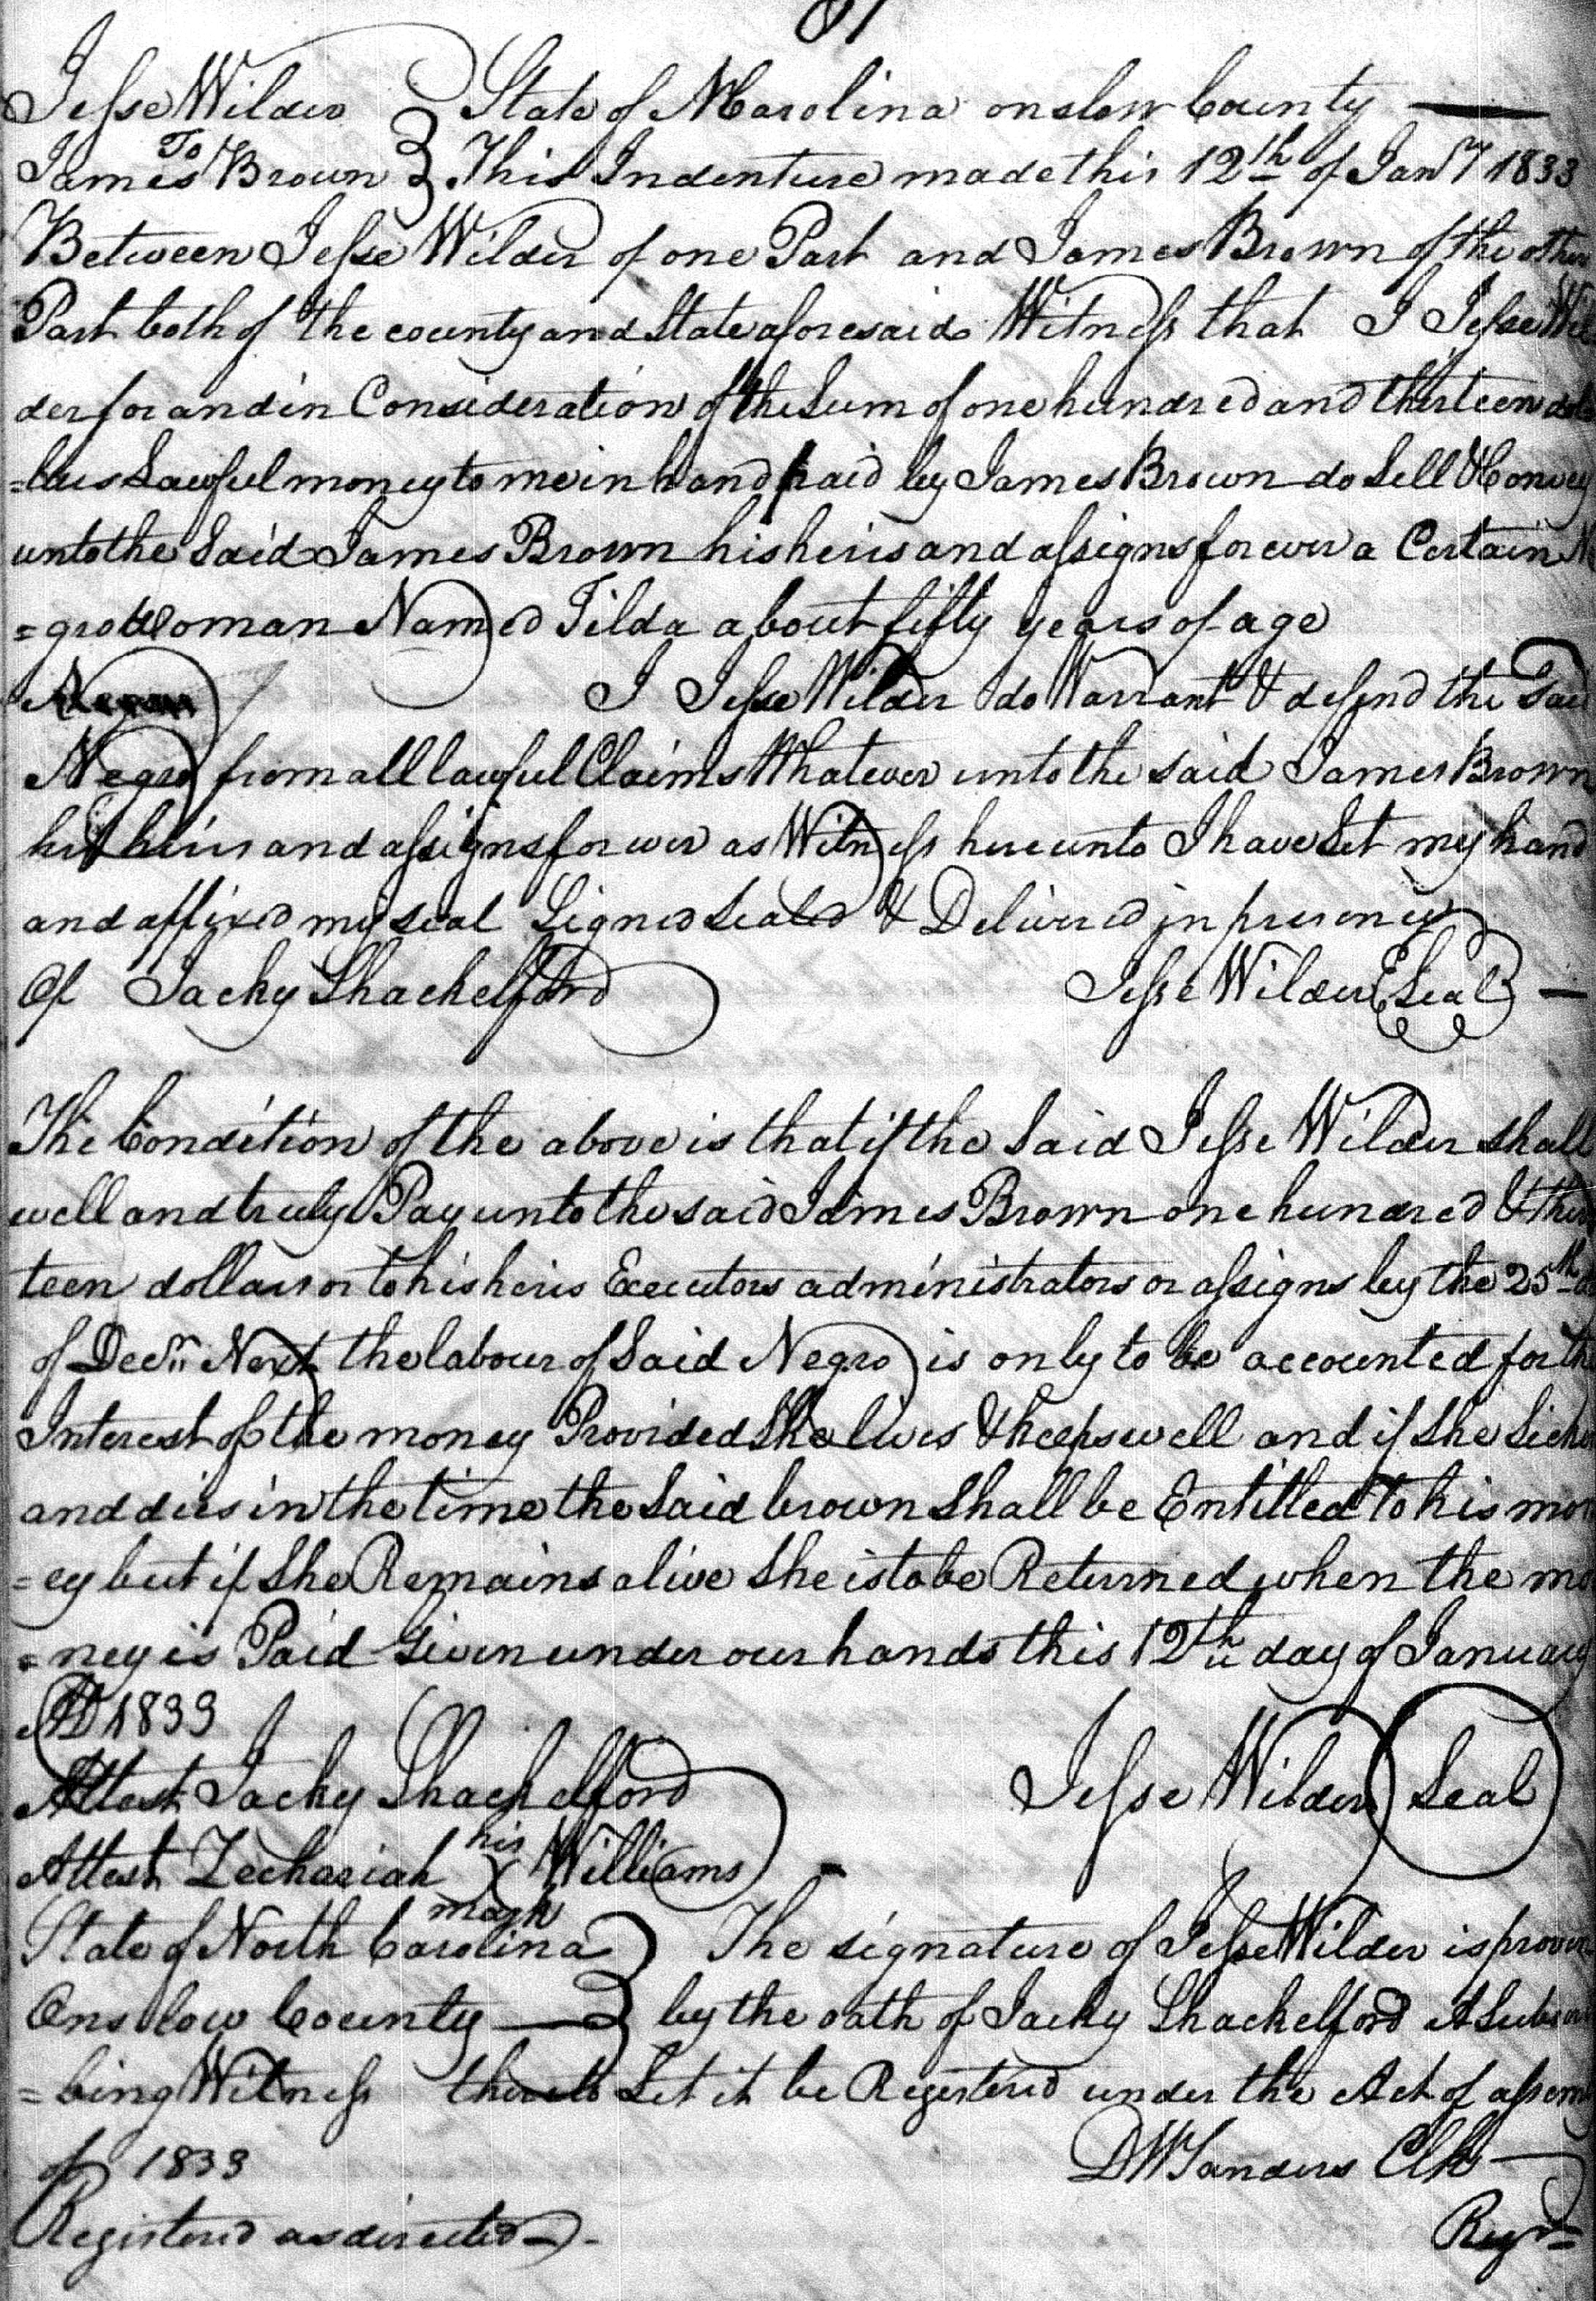 81
Jesse Wilder } State of N Carolina onslow County
To
James Brown } This Indenture made this 12th of Jany 1833
Between Jesse Wilder of one Part and James Brown of the other
Part both of the county and State aforesaid Witness that I Jesse Wil
der for and in Consideration of the Sum of one hundred and thirteen dol
=lars Lawful money to me in hand paid by James Brown do Sell & Convey
unto the Said James Brown his heirs and assigns forever a Certain N
=gro Woman Named Tilda about fifty years of age
I Jesse Wilder do Warrant & defend the Said
Negro from all lawful Claims Whatever unto the said James Brown
his heirs and assigns forever as Witness hereunto I have Set my hand
and affixed my seal Signed Sealed & Delivered in presency
Of Jacky Shackelford Jesse Wilder Seal
The Condition of the above is that if the Said Jesse Wilder shall
well and truly Pay unto the said James Brown one hundred & thir
teen dollars or to his heirs Executors administrators or assigns by the 25th
of Decr Next the labour of Said Negro is only to be accounted for the
Interest of the money Provided She lives & keeps well and if She Sick
and dies in the time the Said brown Shall be Entitled to his mon
=ey but if She Remains alive She is to be Returned when the mo
=ney is Paid Given under our hands this 12th day of January
AD 1833
Attest Jacky Shackelford Jesse Wilder Seal
his
Attest Zechariah X Williams
mark
State of North Carolina } The signature of Jesse Wilder is proven
Onslow County } by the oath of Jacky Shackelford A Subscri
=bing Witness thereto Let it be Registered under the Act of assem
of 1833 DWSanders Clk
Registered as directed Regr